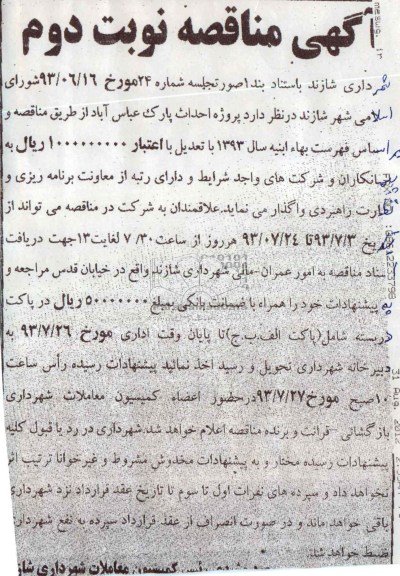 آگهی مناقصه نوبت دوم
شهرداری شازند باستناد بند۱صورتجلسه شماره ۲۴مورخ ۹۳/۰۶/۱۶شورای
اسلامی شهر شازند درنظر دارد پروژه احداث پارک عباس آباد از طریق مناقصه و
براساس فهرست بهاء ابنیه سال ۱۳۹۳ با تعدیل با اعتبار ۱۰۰۰۰۰۰۰۰۰۰ ریال به
پیمانکاران و شرکت های واجد شرایط و دارای رتبه از معاونت برنامه ریزی و
نظارت راهبردی واگذار می نماید.علاقمندان به شرکت در مناقصه می تواند از
تاریخ ۹۳/۷/۳تا ۹۳/۰۷/۲۴ هرروز از ساعت۷/۳۰ لغایت۱۳جهت دریافت
اسناد مناقصه به امور عمران-مالی شهرداری شازند واقع در خیابان قدس مراجعه و
پیشنهادات خود را همراه با ضمانت بانکی بمبلغ ۵۰۰۰۰۰۰۰۰ ریال در پاکت
دربسته شامل(پاکت الف.ب.ج)تا پایان وقت اداری مورخ ۹۳/۷/۲۶ به
دبیرخانه شهرداری تحویل و رسید اخذ نمائید پیشنهادات رسیده رأس ساعت
۱۰صبح مورخ۹۳/۷/۲۷درحضور اعضاء کمیسیون معاملات شهرداری
بازگشائی - قرائت و برنده مناقصه اعلام خواهد شد.شهرداری در رد یا قبول کلیه
پیشنهادات رسیده مختار و به پیشنهادات مخدوش مشروط و غیرخوانا ترتیب اثر
نخواهد داد و سپرده های نفرات اول تا سوم تا تاریخ عقد قرارداد نزد شهرداری
باقی خواهد ماند و در صورت انصراف از عقد قرارداد سپرده به نفع شهرداری
ضبط خواهد شد.
رئیس کمیسیون معاملات شهرداری شازند